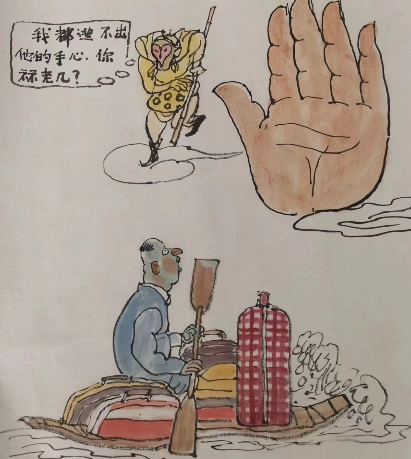 我都逃不出
他的手心.你
算老几?